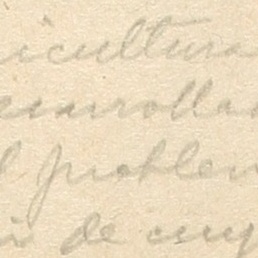 icultura
esarrollad
l problem
de cuy